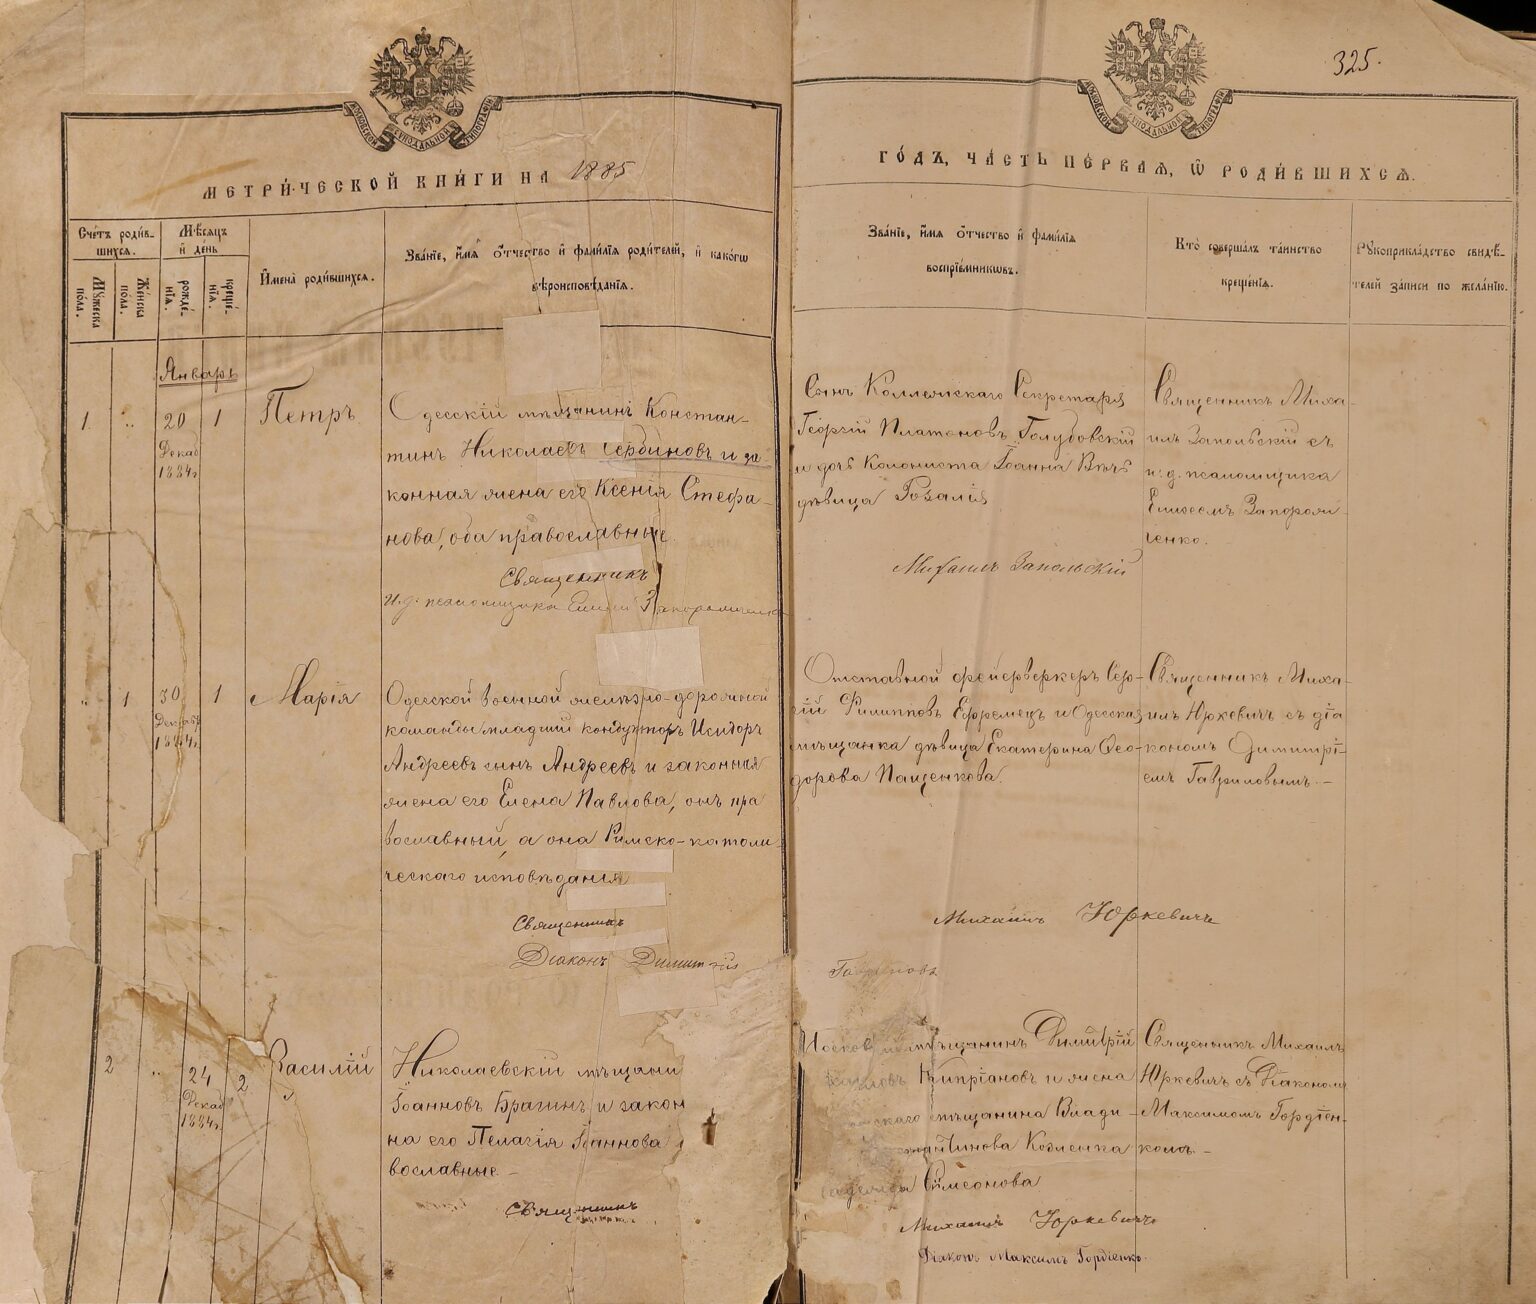 325.
МОСКОВСКОЙ СѴНОДАЛЬНОЙ ТИПОГРАФІИ
МОСКОВСКОЙ СѴНОДАЛЬНОЙ ТИПОГРАФІИ
МЕТРИ́ЧЕСКОЙ КНИ́ГИ НА 1885
ГО́ДЪ, ЧА́СТЬ ПЕ́РВАѦ, Ѡ҆ РОДИ́ВШИХСѦ.
Сче́тъ роди́в-
шихсѧ.
Мꙋ́жеска
по́ла.
Же́нска
по́ла.
Мѣ́сѧцъ
и҆ де́нь
рожде́-
нїѧ.
креще́-
нїѧ.
И҆мена̀ роди́вшихсѧ.
Зва́нїе, и҆́мѧ ѻ҆́тчество и҆ фами́лїѧ роди́телей, и҆ како́гѡ
вѣроисповѣ́данїѧ.
Зва́нїе, и҆́мѧ ѻ҆́тчество и҆ фами́лїѧ
воспрїе́мникѡвъ.
Кто̀ соверша́лъ та́инство
креще́нїѧ.
Рꙋкоприкла́дство свидѣ́-
телей за́писи по жела́нїю.
Январь
1 " 20 1
Декаб
1884г.
Петръ
Одесскій мѣщанинъ Констан-
тинъ Николаевъ Сербиновъ и за-
конная жена его Ксенія Стефа-
нова, оба православные.
Священникъ
и.д. псаломщика Елисей Запорожченко
Сынъ Коллежскаго Секретаря
Георгій Платоновъ Голубовскій
и дочь Колониста Іоанна
дѣвица Розалія
Михаилъ Запольскій
Священникъ Миха-
илъ Запольскій съ
и.д. псаломщика
Елисеемъ Запорож-
ченко.
" 1 30 1
Декабъ
1884г.
Марія
Одесской военной желѣзно-дорожной
команды младшій кондукторъ Исидоръ
Андреевъ сынъ Андреевъ и законная
жена его Елена Павлова, онъ пра
вославный, а она Римско-католи-
ческаго исповѣданія
Священникъ
Діаконъ Димитрій
Отставной фейерверкеръ Сер-
гій Филипповъ Ефремецъ и Одесская
мѣщанка дѣвица Екатерина Ѳео-
дорова Пащенкова.
Михаилъ Юркевичъ
Гавриловъ
Священникъ Миха-
илъ Юркевичъ съ діа
кономъ Димитрі-
емъ Гавриловымъ.-
2 " 24 2
Декаб
1884г.
Василій
Николаевскій мѣщани
Іоанновъ Брагинъ и закон
на его Пелагія Іоаннова
вославные.-
Священникъ
мѣщанинъ Димитрій
Кипріановъ и жена
скаго мѣщанина Влади-
Козленка
Симеонова
Михаилъ Юркевичъ
Діаконъ Максимъ Гордіенко.
Священникъ Михаилъ
Юркевичъ съ Діакономъ
Максимомъ Гордіен-
комъ.-